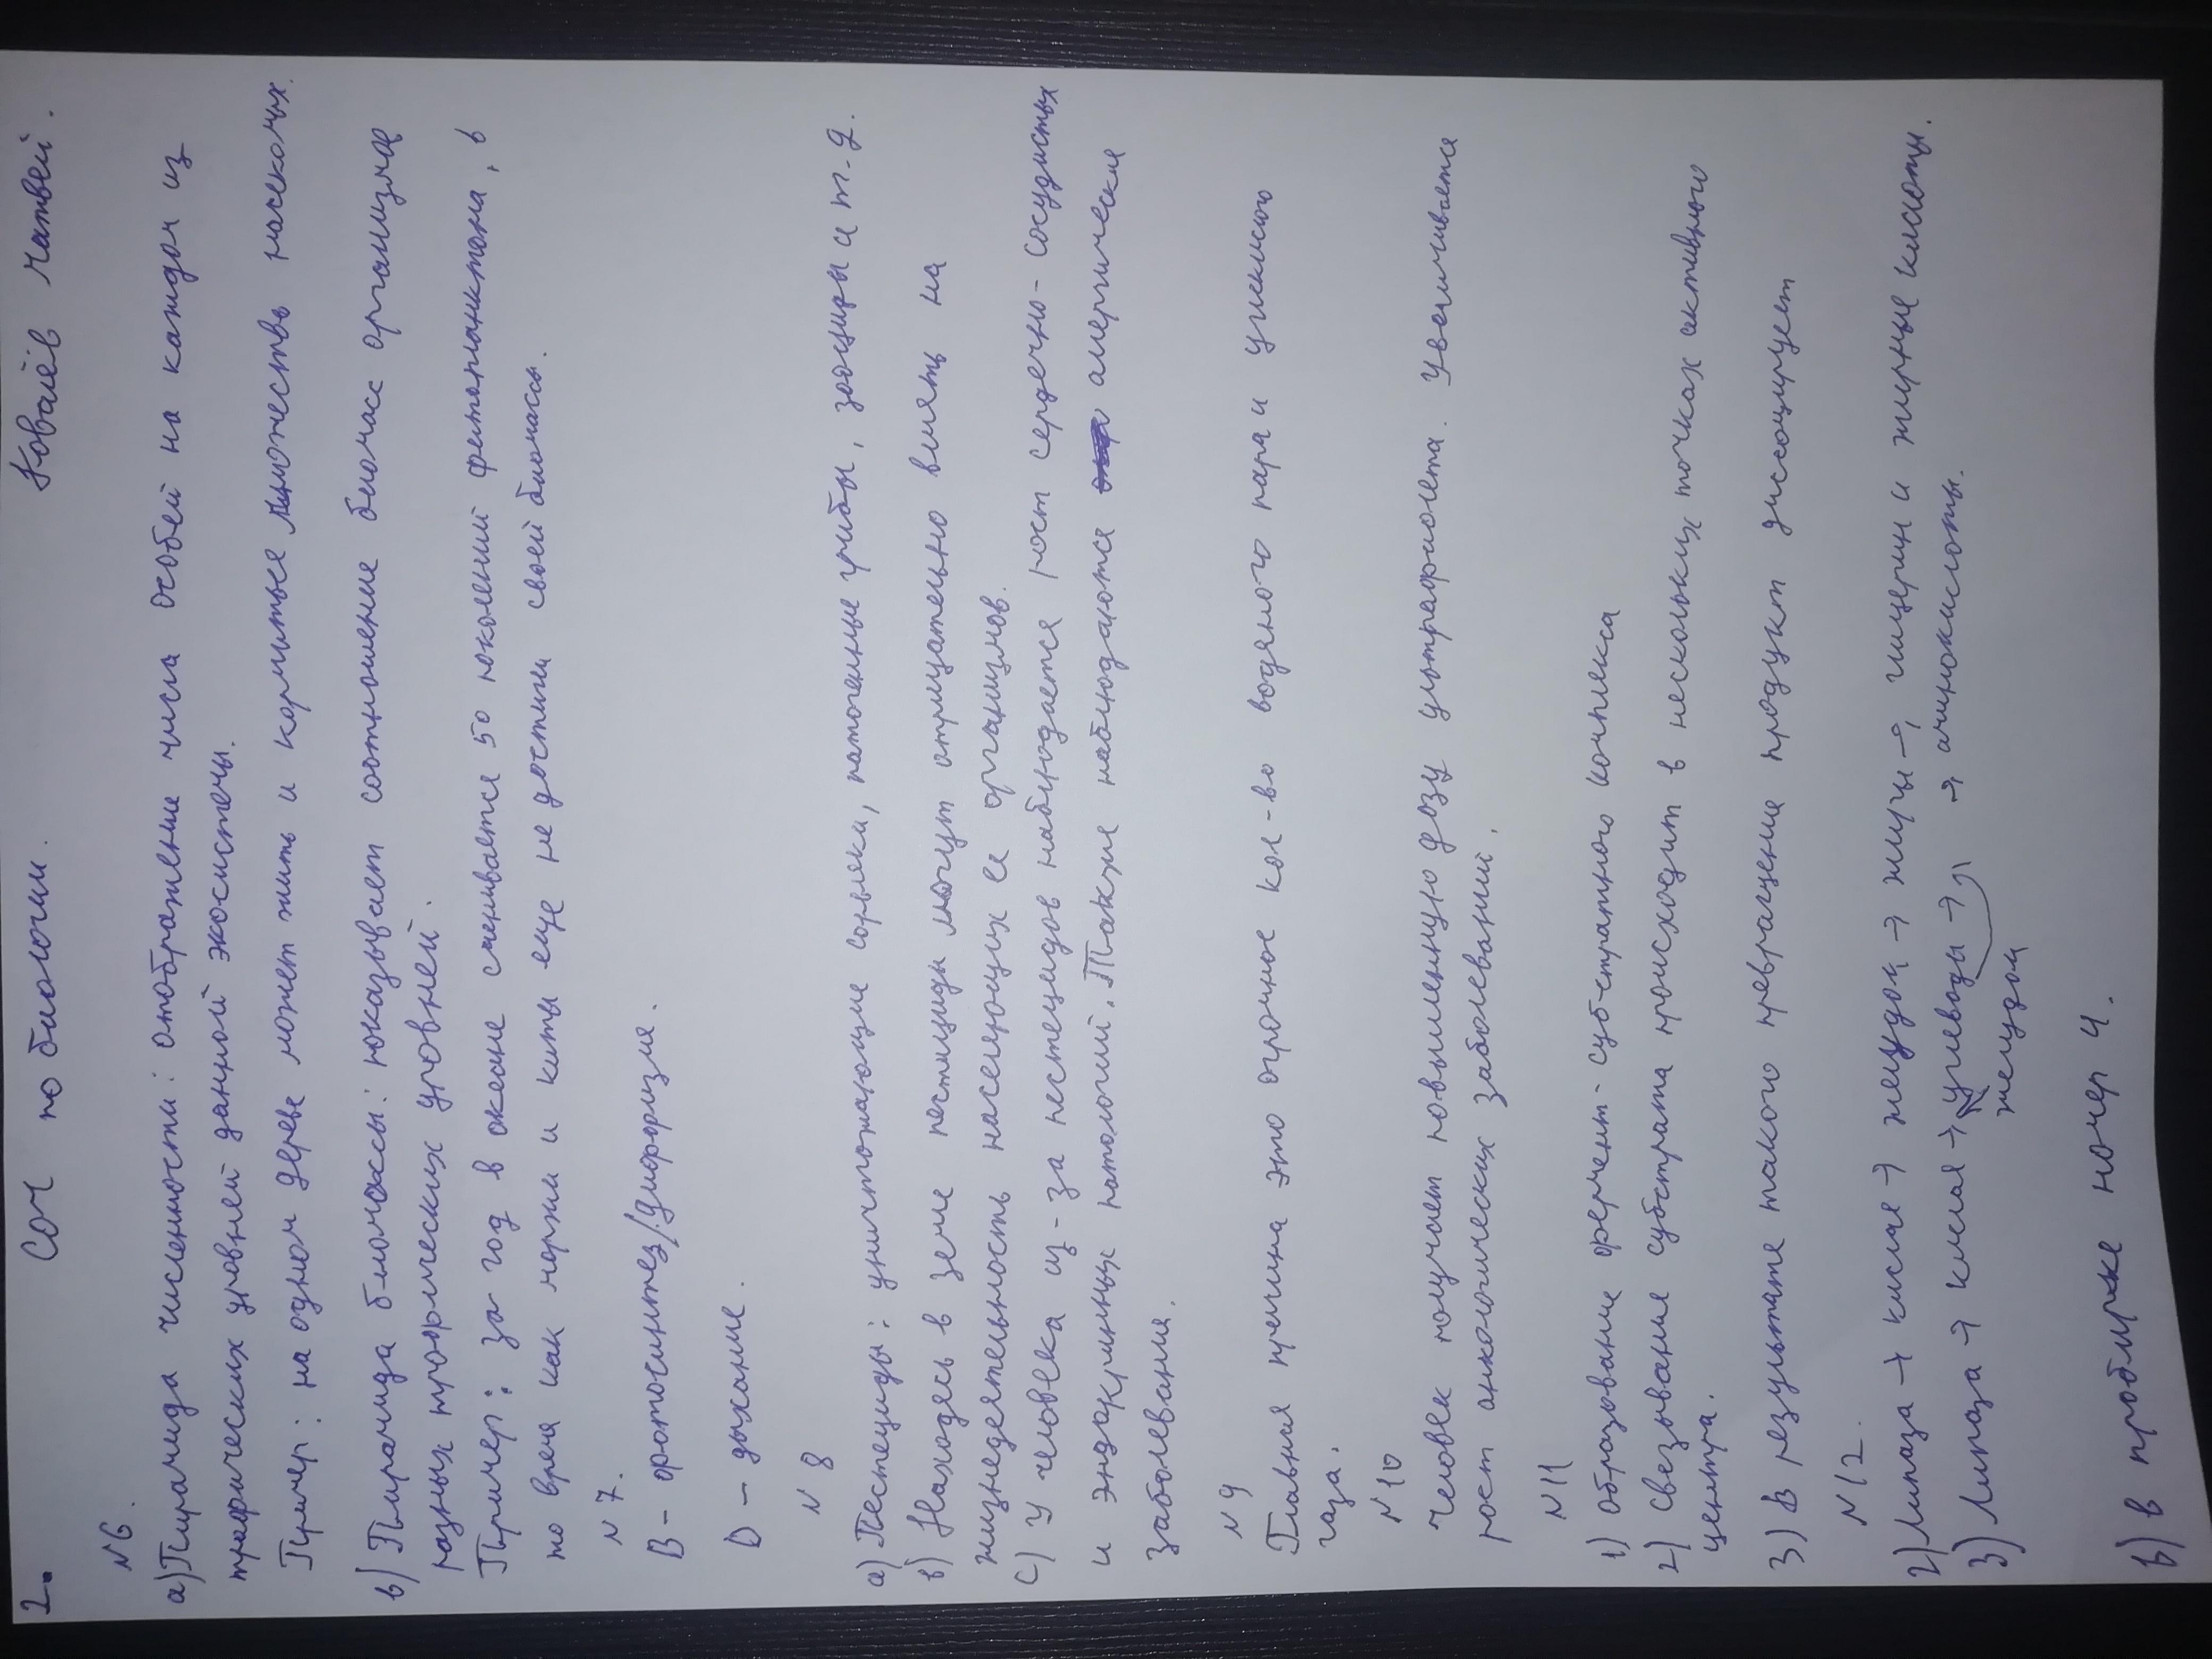 2. Соч по биологии. Ковалёв Матвей.
N6.
а) Пирамида численности: отображение числа особей на каждом из
трофических уровней данной экосистемы.
Пример: на одном дереве может жить и кормиться множество насекомых.
в) Пирамида биомассы: показывает соотношение биомасс организмов
разных трофических уровней.
Пример: за год в океане сменивается 50 поколений фитопланктона, в
то время как моржи и киты еще не достигли своей биомассы.
N7.
B - фотосинтез/
D - дыхание.
N8
а) Пестециды: уничтожающие сорняки, патогенные грибы, зооциды и т.д.
в) Находясь в земле пестициды могут отрицательно влиять на
жизнедеятельность населяющих ее организмов.
с) У человека из-за пестецидов наблюдается рост сердечно-сосудистых
и эндокринных патологий. Также наблюдаются аллергические
заболевания.
N9
Главная причина это огромное кол-во водяного пара и углекислого
газа.
N10
Человек получает повышенную дозу ультрафиолета. Увеличивается
рост анкологических заболеваний.
N11
1) Образование фермент-субстратного комплекса
2) Связывание субстрата происходит в нескольких точках активного
центра.
3) В результате такого превращение продукт диссоциирует
N12.
2) Липаза → кислая → желудок → жиры → глицерин и жирные кислоты.
3) Липаза → кислая → углеводы → → аминокислоты.
желудок
b) в пробирке номер 4.